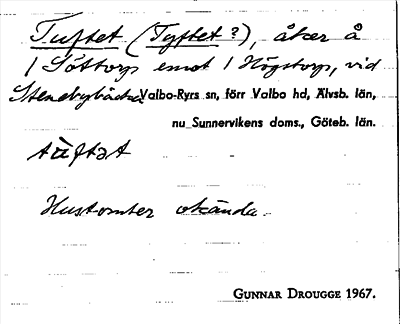 Tuftet (Tyftet?), åker å
1 Söttorp emot 1 Högstorp, vid
Stenebybäcken Valbo-Ryrs sn, förr Valbo hd, Älvsb. län,
nu Sunnervikens doms., Göteb. län.
Hustomter okända.
GUNNAR DROUGGE 1967.